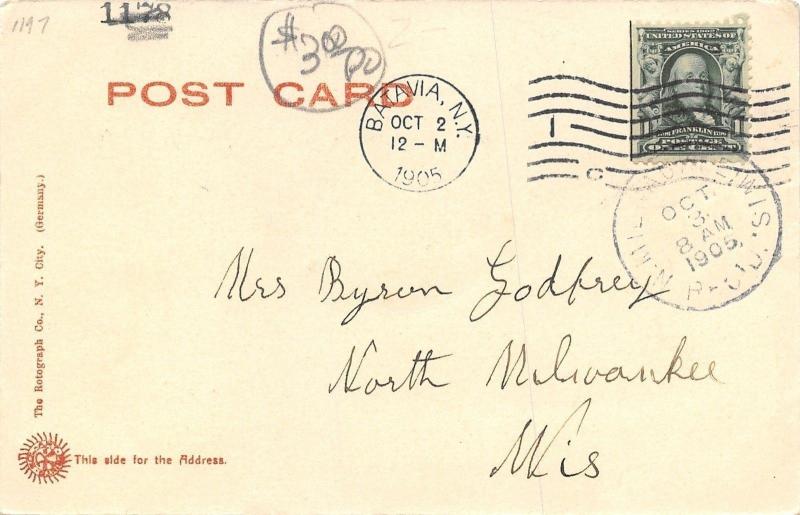 1197
1178
$3 00/00
POST CARD
BATAVIA, N.Y.
OCT 2
12 - M
1905
1
C
SERIES 1902
UNITED STATES OF
AMERICA
FRANKLIN
POSTAGE
ONE CENT
N. MILWAUKEE, WIS.
OCT.
3.
8 AM
1905
REC'D.
Mrs Byron Godfrey
North Milwaukee
Wis
The Rotograph Co., N. Y. City. (Germany.)
This side for the Address.